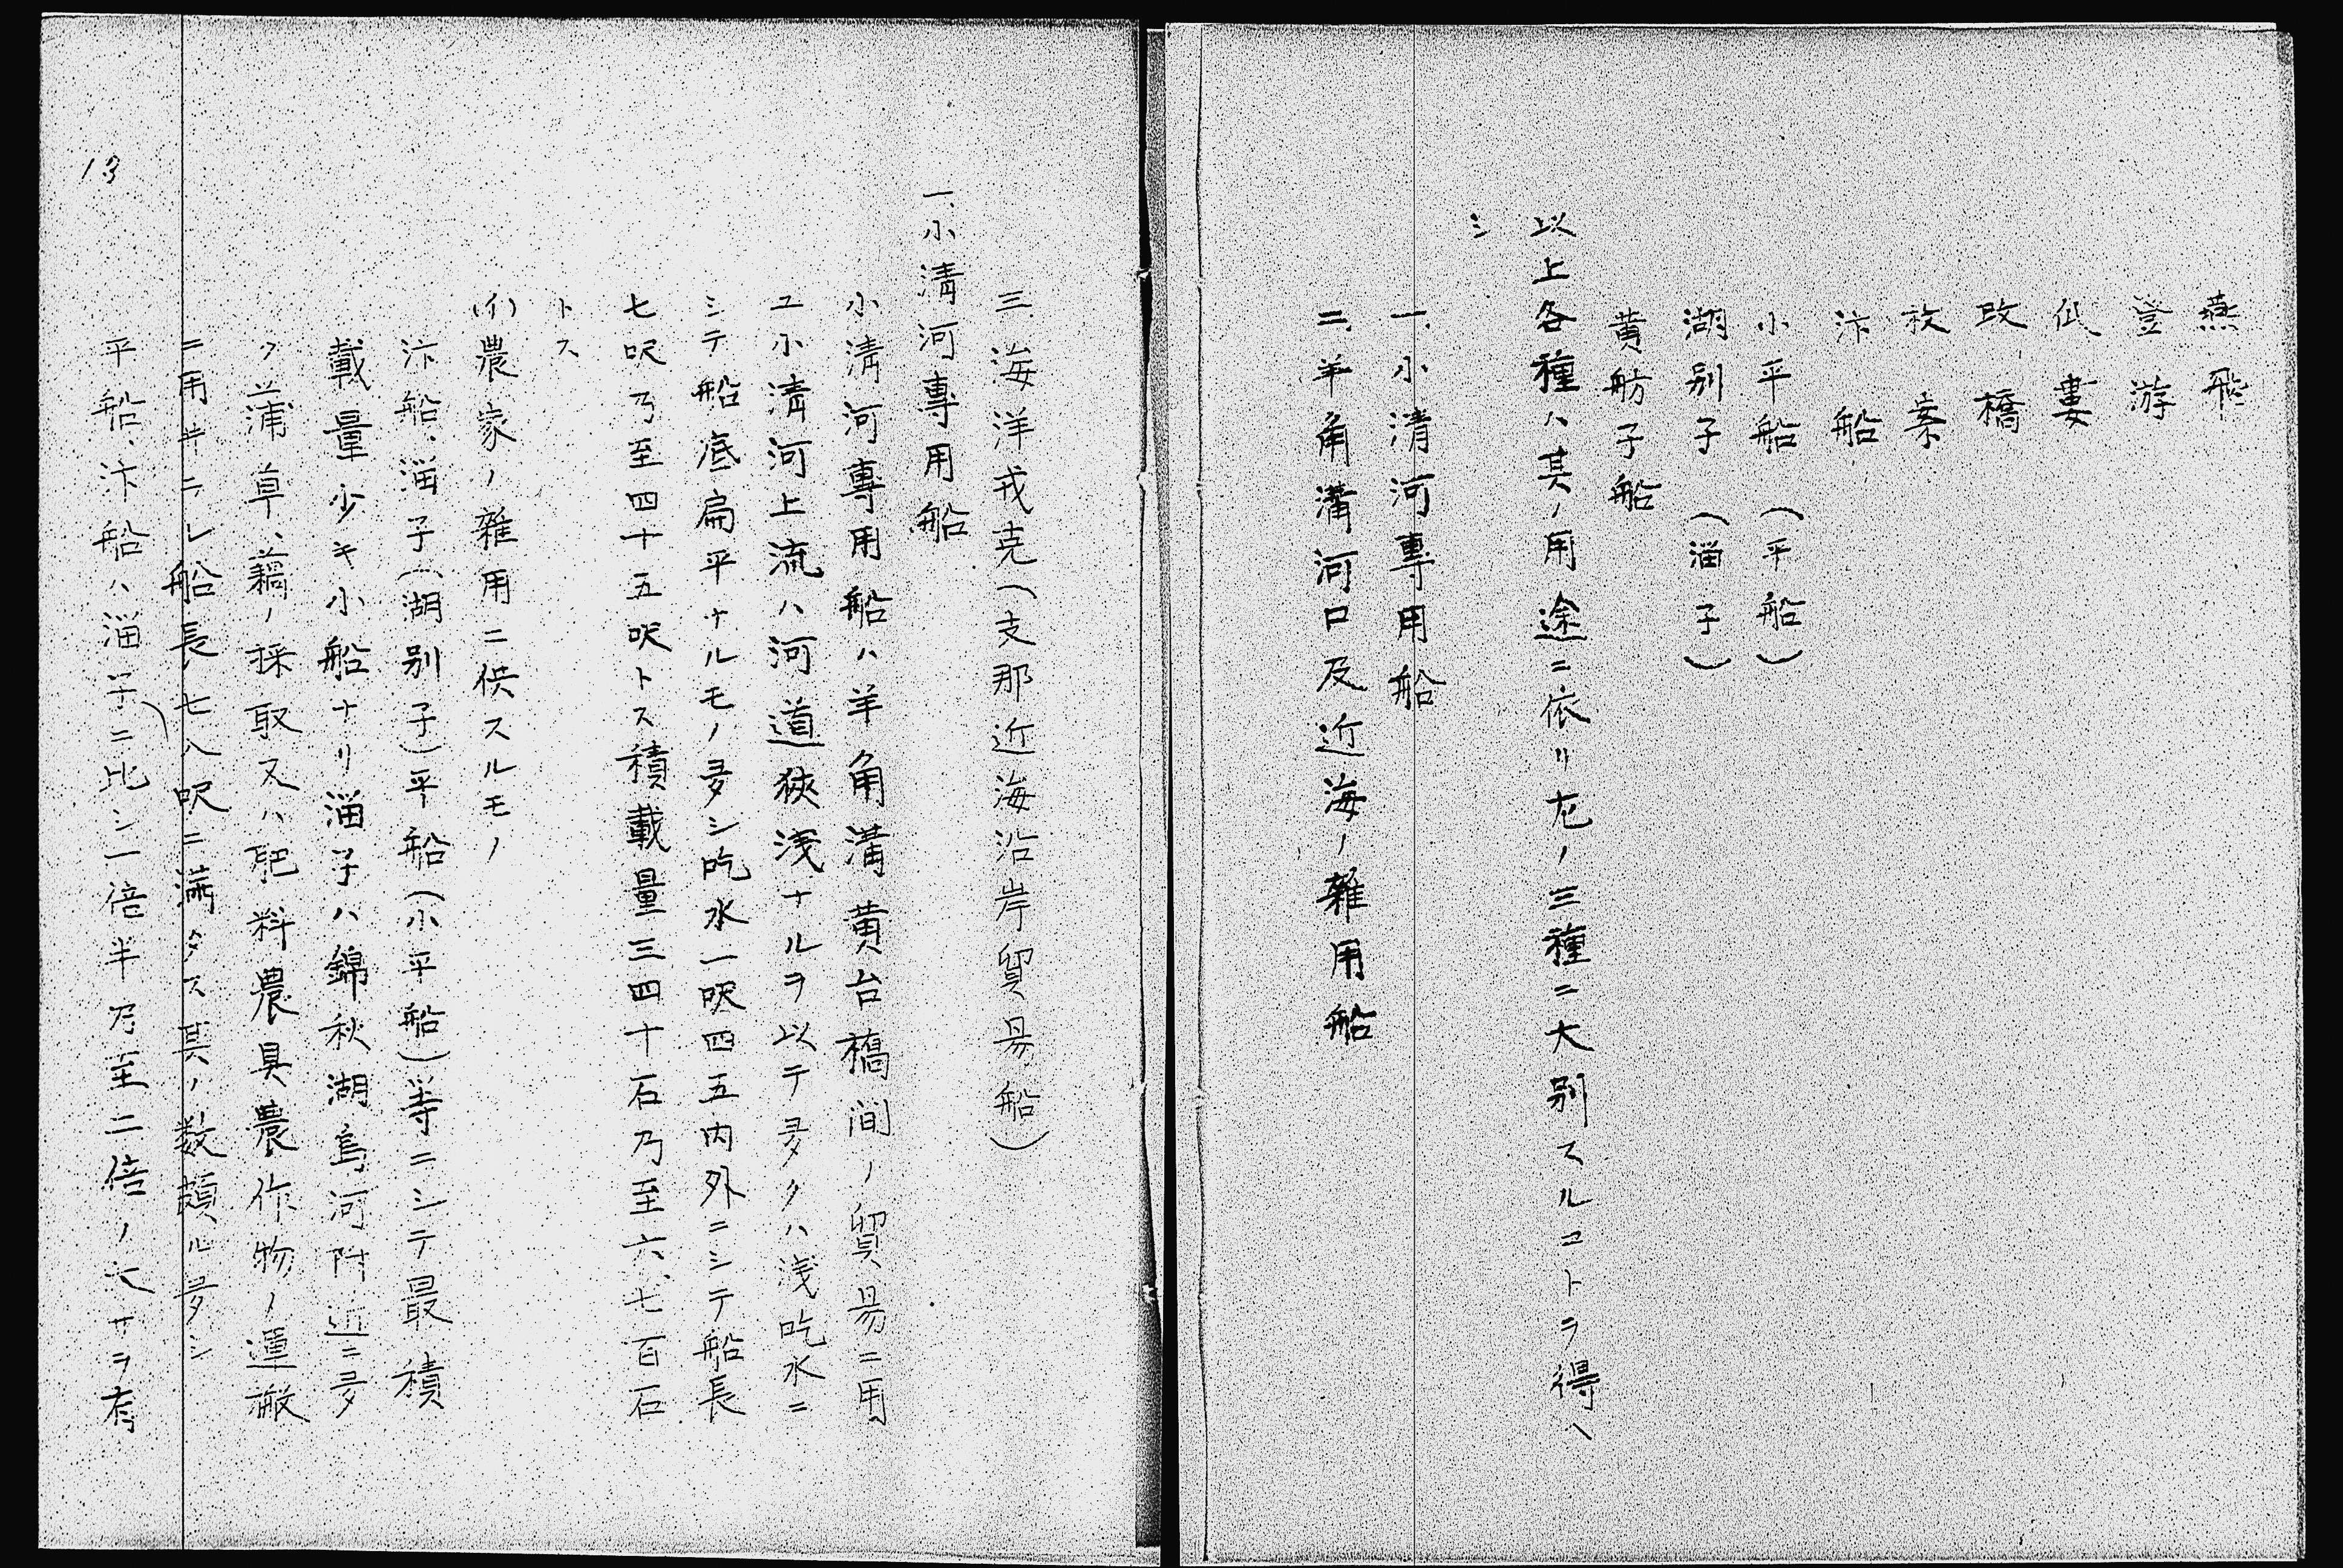 燕飛
登游
低婁
改橋
枚䌇
汴船
小平船(平船)
湖別子(淄子)
黄舫子船
以上各種ハ其ノ用途ニ依リ左ノ三種ニ大別スルコトヲ得ヘ
シ
一、小清河專用船
二、羊角溝河口及近海ノ雜用船
三、海洋戎克(支那近海沿岸貿易船)
一、小淸河專用船
小淸河專用船ハ羊角溝黄台橋間ノ貿易ニ用
ユ小淸河上流ハ河道狹浅ナルヲ以テ多クハ浅吃水ニ
シテ船底扁平ナルモノ多シ吃水一呎四五内外ニシテ船長
七呎乃至四十五呎トス積載量三四十石乃至六、七百石
トス
(イ)農家ノ雜用ニ供スルモノ
汴船、淄子(湖別子)平船(小平船)等ニシテ最積
載量少キ小船ナリ淄子ハ錦秋湖烏河附近ニ多
ク蒲草、藕ノ採取又ハ肥料農具農作物ノ運搬
ニ用ヰラレ船長七八呎ニ満タス其ノ数頗ル多シ
平船、汴船ハ淄子ニ比シ一倍半乃至二倍ノ大サヲ有
13